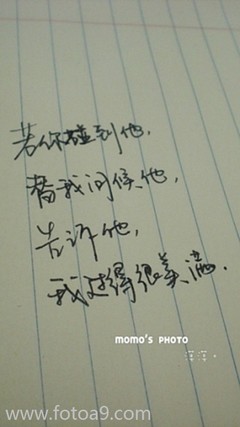 若你碰到他，
替我问候他，
告诉他，
我过得很美满．
momo's PHOTO
www.fotoa9.com